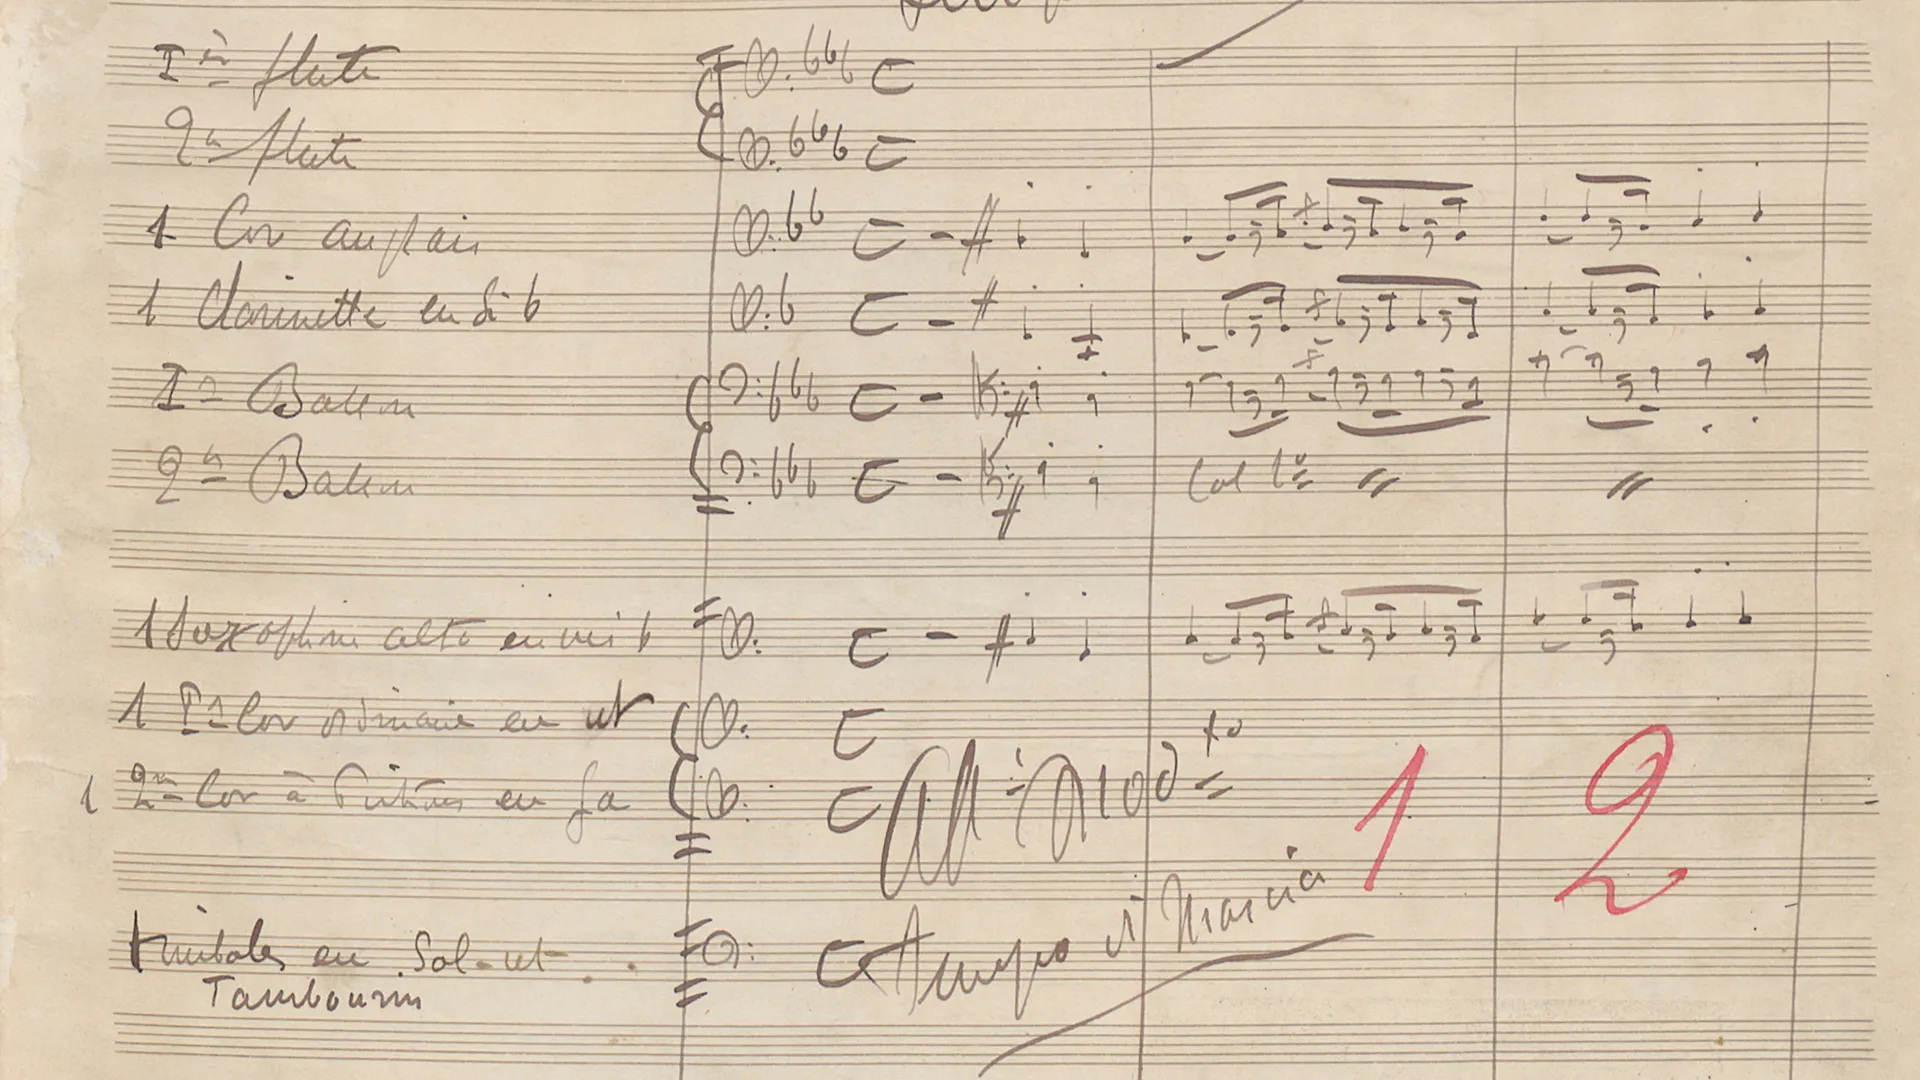 1re flute
2me flute
1 Cor anglais
1 Clarinette en Si b
1r Basson
2me Basson
Col 1o
1 Saxophone alto en mi b
1 1r Cor ordinaire en ut
1 2me Cor à Pistons en fa
All
to
1 2
Timbales en Sol-ut
Tempo di Marcia
Tambourin